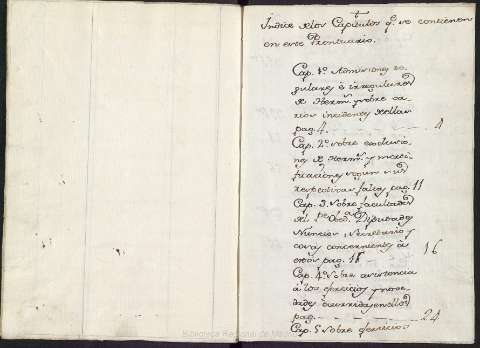 Indice de los Capitulos q.e se contienen
en este Prontuario.
Cap. 1.o Admisiones re-
gulares è irregulares
de Herm.s y sobre va-
rios incidentes de ellas
pag. 4. 4
Cap. 2.o sobre exclusio-
nes de Herm.s y mortificaciones segun sus
respectivas faltas, pag. 11
Cap. 3. Sobre facultades
del P.e Obed.a Diputados
Nuncios, Secretario y
cosas concernientes à
estos pag. 16 16
Cap. 4.o Sobre asistencia
à los exercicios y nove-
dades ocurridas en ellos
pag. 24
Cap. 5 Sobre exercicios
Biblioteca Regional de Madrid